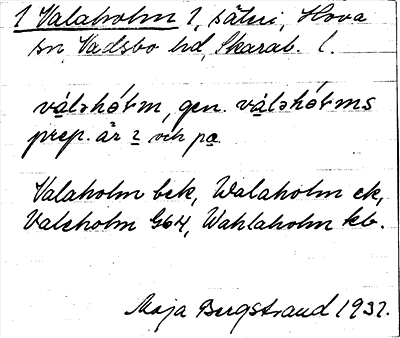 1 Valaholm 1, säteri, Hova
sn, Vadsbo hd, Skarab. l.
vál̥əhół̥m, gen. vál̥əhół̥ms
prep. är 2 och pa.
Valaholm bek, Walaholm ek,
Valeholm G64, Wahlaholm kb.
Maja Bergstrand 1932.